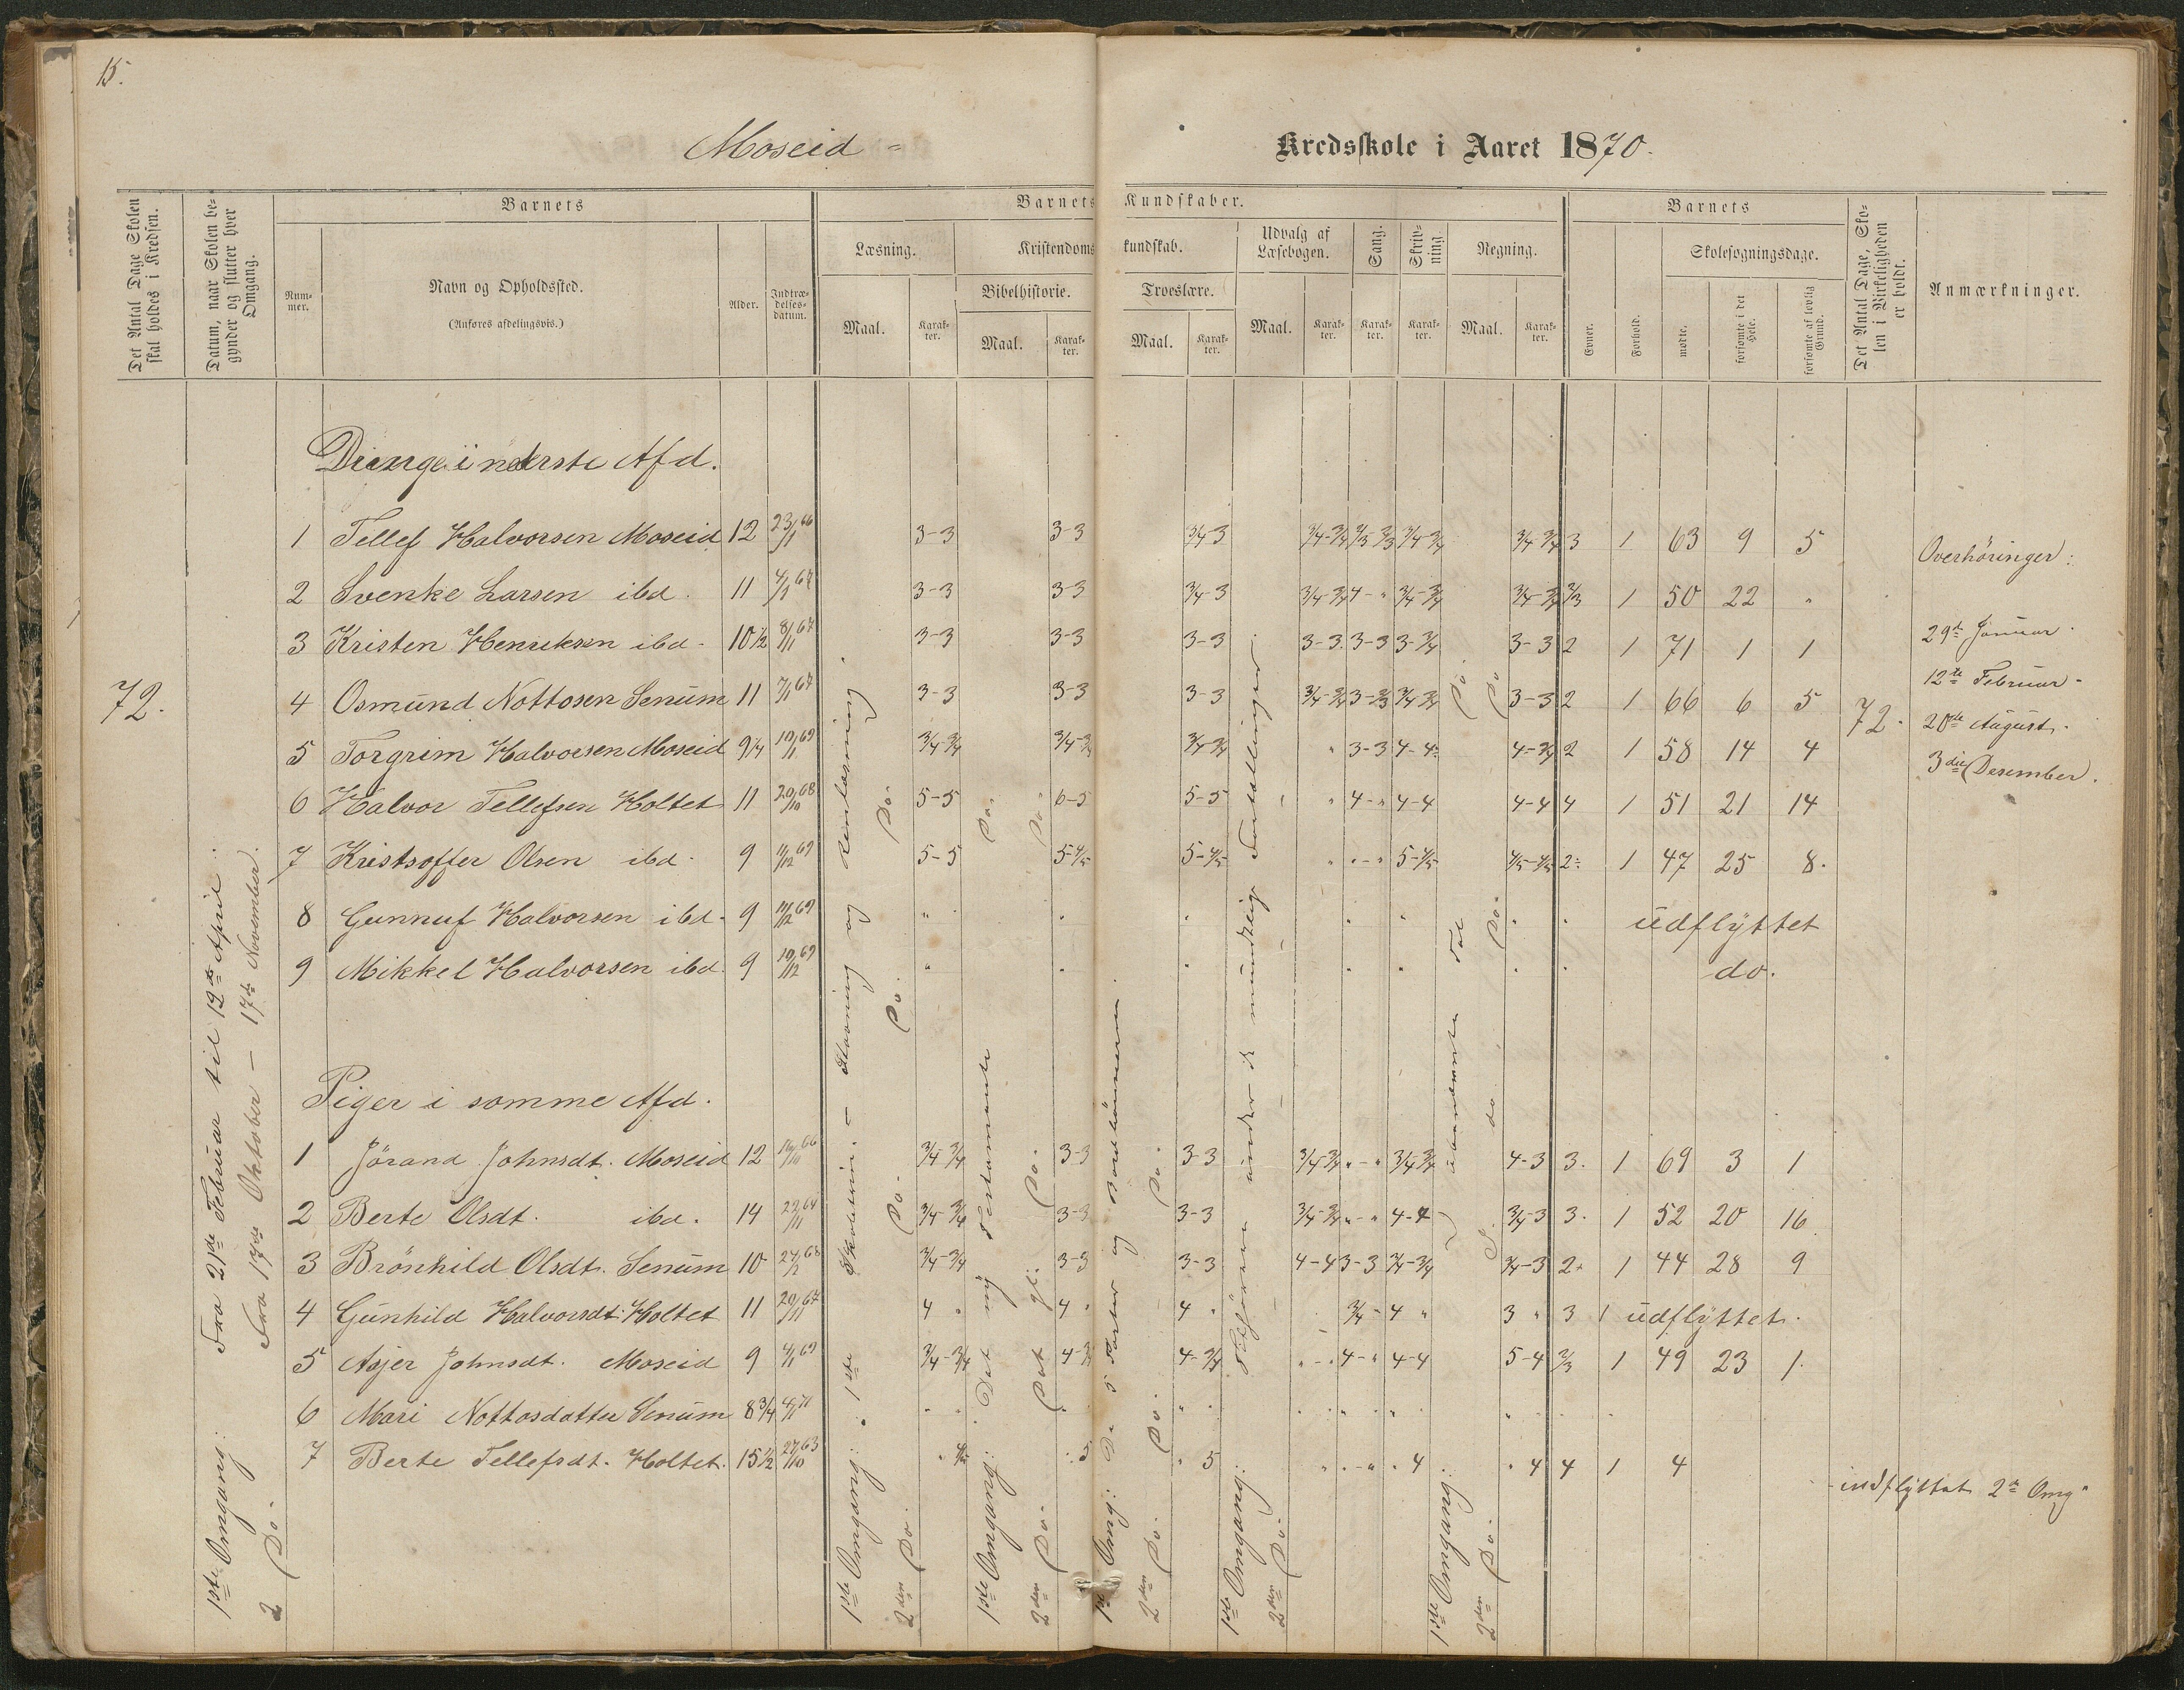 15.
Moseid =
Kredsskole i Aaret 1870.
Det Antal Dage Skolen skal holdes i Kredsen.
Datum, naar Skolen begynder og slutter hver Omgang.
Barnets
Nummer.
Navn og Opholdssted.
(Anføres afdelingsvis.)
Alder.
Indtrædelsesdatum.
Barnets Kundskaber.
Læsning.
Maal.
Karakter.
Kristendomskundskab.
Bibelhistorie.
Maal.
Karakter.
Troeslære.
Maal.
Karakter.
Udvalg af Læsebogen.
Maal.
Karakter.
Sang.
Karakter.
Skrivning.
Karakter.
Regning.
Maal.
Karakter.
Barnets
Evner.
Forhold.
Skolesøgningsdage.
mødte.
forsømte i det Hele.
forsømte af lovlig Grund.
Det Antal Dage, Skolen i Virkeligheden er holdt.
Anmærkninger.
Drenge i nederste Afd.
1 Tellef Halvorsen Moseid 12 23/1 66 3-3 3-3 3/4 3 3/4-3/4 2/3 2/3 3/4-3/4 3/4-3/4 3 1 63 9 5
Overhöringer:
2 Svenke Larsen ibd. 11 4/1 67 3-3 3-3 3/4-3 3/4-3/4 4-" 3/4-3/4 3/4-3/4 2/3 1 50 22 "
3 Kristen Henriksen ibd. 10 1/2 8/1 67 3-3 3-3 3-3 3-3. 3-3 3-3/4 3-3 2 1 71 1 1
29de Januar.
72.
4 Osmund Nottosen Senum 11 7/1 67 3-3 3-3 3-3 3/4-3/4 3-2/3 3/4 3/4 3-3 2 1 66 6 5
72.
12te Februar.
20de August.
5 Torgrim Halvorsen Moseid 9 1/4 19/1 69 3/4 3/4 3/4-3/4 3/4 3/4 " 3-3 4-4 4-3/4 2 1 58 14 4
3die Desember.
6 Halvor Tellefsen Holtet 11 20/10 68 5-5 6-5 5-5 " 4-" 4-4 4-4 4 1 51 21 14
7 Kristoffer Olsen ibd. 9 11/12 69 5-5 5-4/5 5-4/5 " "-" 5-4/5 4/5-4/5 2 1 47 25 8.
8 Gunnuf Halvorsen ibd. 9 10/12 69 udflyttet
9 Mikkel Halvorsen ibd. 9 10/12 69 do.
Piger i samme Afd.
1 Jörand Johnsdt. Moseid 12 16/11 66 3/4 3/4 3-3 3-3 3/4-3/4 "-" 3/4 3/4 4-3 3. 1 69 3 1
2 Berte Olsdt. ibd. 14 22/11 64 3/4-3/4 3-3 3-3 3/4-3/4 "-" 4-4 3/4-3 3. 1 52 20 16
3 Brönhild Olsdt. Senum 10 3/4-3/4 3-3 3-3 4-4 3-3 3/4-3/4 3/4-3 2 1 44 28 9
4 Gunhild Halvorsdt. Holtet 11 20/11 67 4 " 4 " 4 " 3/4 - 4 " 3 " 3 1 udflyttet.
5 Asjer Johnsdt. Moseid 9 4/1 69 3/4-3/4 4-3/4 4-3/4 "-" 4-" 4-4 5-4 2/3 1 49 23 1.
6 Mari Nottosdatter Senum 8 3/4
7 Berte Tellefsdt. Holtet. 15 1/2 27/10 63 " 4/5 5 " 5 " 4 " 4 4 1 4
indflyttet 2de Omg.
1ste Omgang: Fra 21de Februar til 12te April.
2 Do. Fra 17de Oktober - 17de November.
1ste Omgang: 1ste Skoletrin. - Stavning og Renlæsning.
2den Do. Do. Do. Do.
1ste Omgang: Det ny Testamente
2den Do. Det gl. Do. Do. Do.
1ste Omg: De 5 Parter og
2den Do. Do. Do.
1ste Omgang: under de mundtlige Fortællinger
2den Do.
1ste Omgang: ubenævnte Tal
2den Do. do Do. Do. Do.